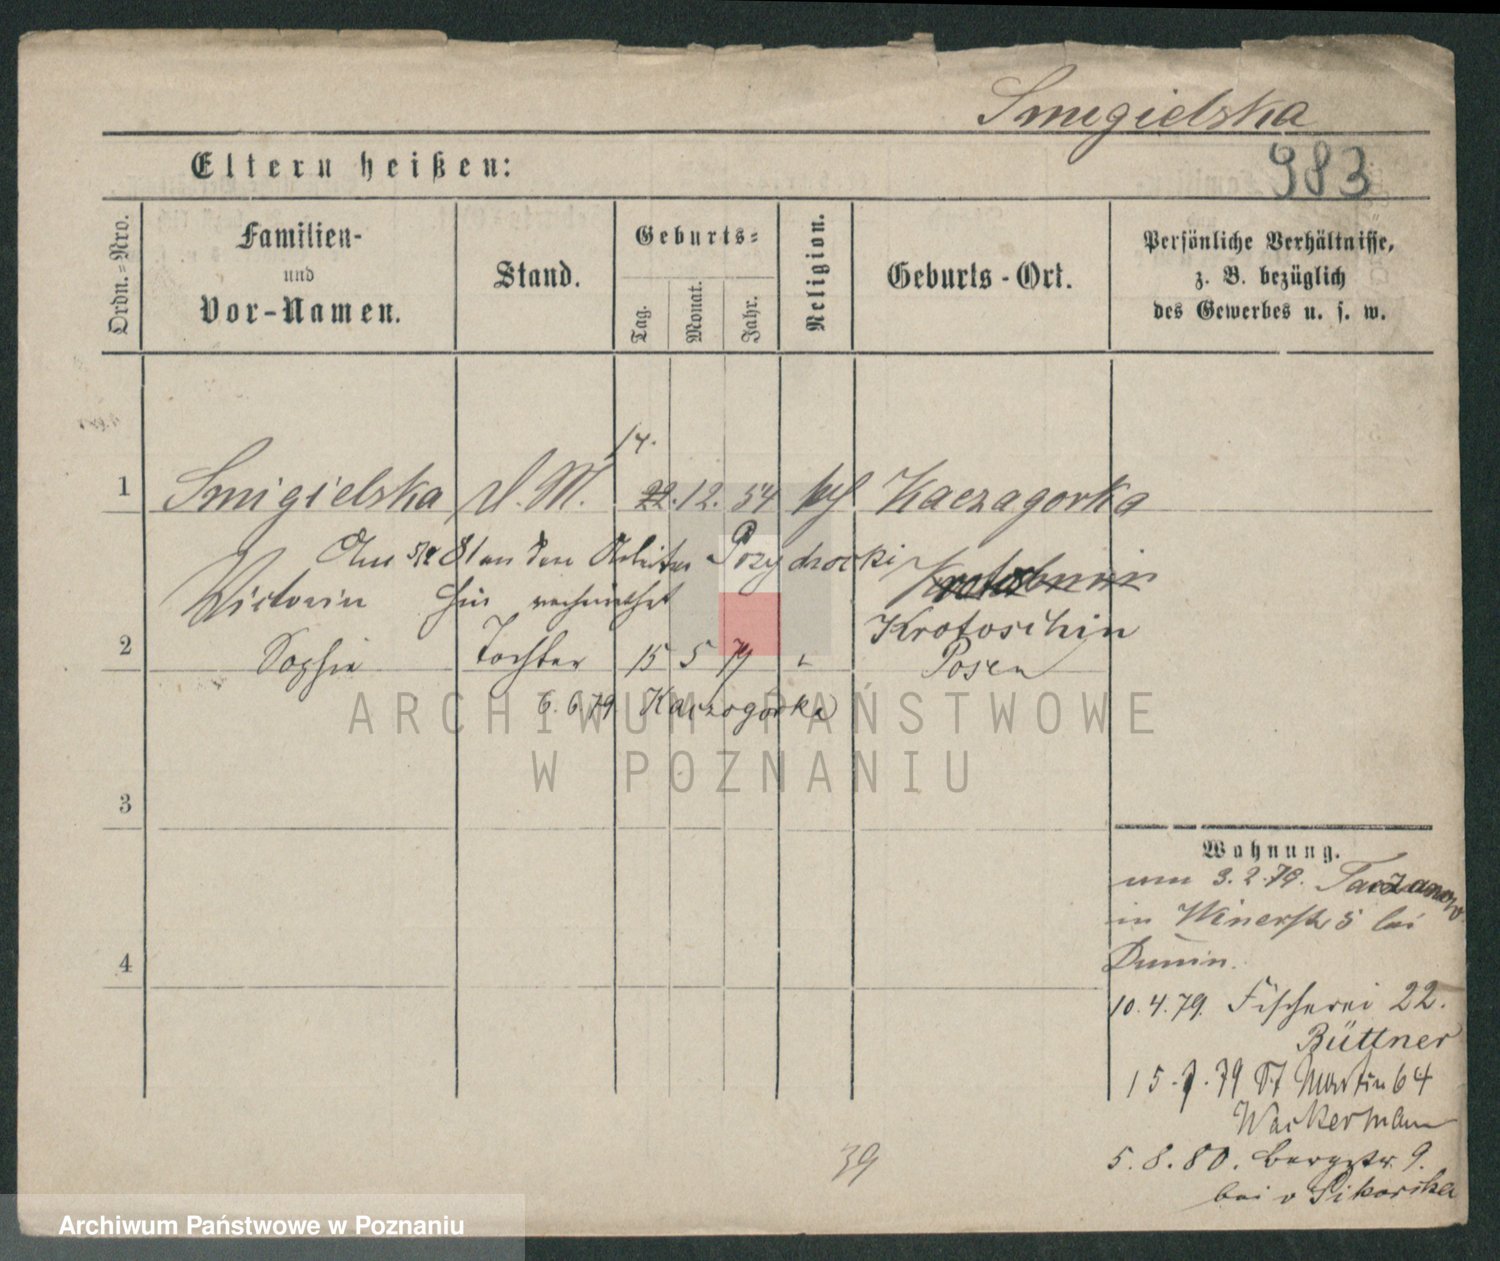 Smigielska
983
Eltern heißen:
Ordn.=Nro.
Familien-
und
Vor-Namen.
Stand.
Geburts=
Tag.
Monat.
Jahr.
Religion.
Geburts-Ort.
Persönliche Verhältnisse,
z. B. bezüglich
des Gewerbes u. s. w.
14.
1 Smigielska D. M. 22. 12. 54 Kaczagorka
81 an den Arbeiter
Victoria hier verheirathet
Krotoschin
2 Sophie Tochter 15 5 79 Posen
6. 6. 79 Kaczogorka
ARCHIWUM PAŃSTWOWE
W POZNANIU
3
4
Wohnung.
3. 2. 79. Taczanow
in 5 bei
Dunin.
10. 4. 79. Fischerei 22.
Büttner
79 St Martin 64
Wackermann
5. 8. 80. Bergstr. 9.
bei v Sikorska
39
Archiwum Państwowe w Poznaniu